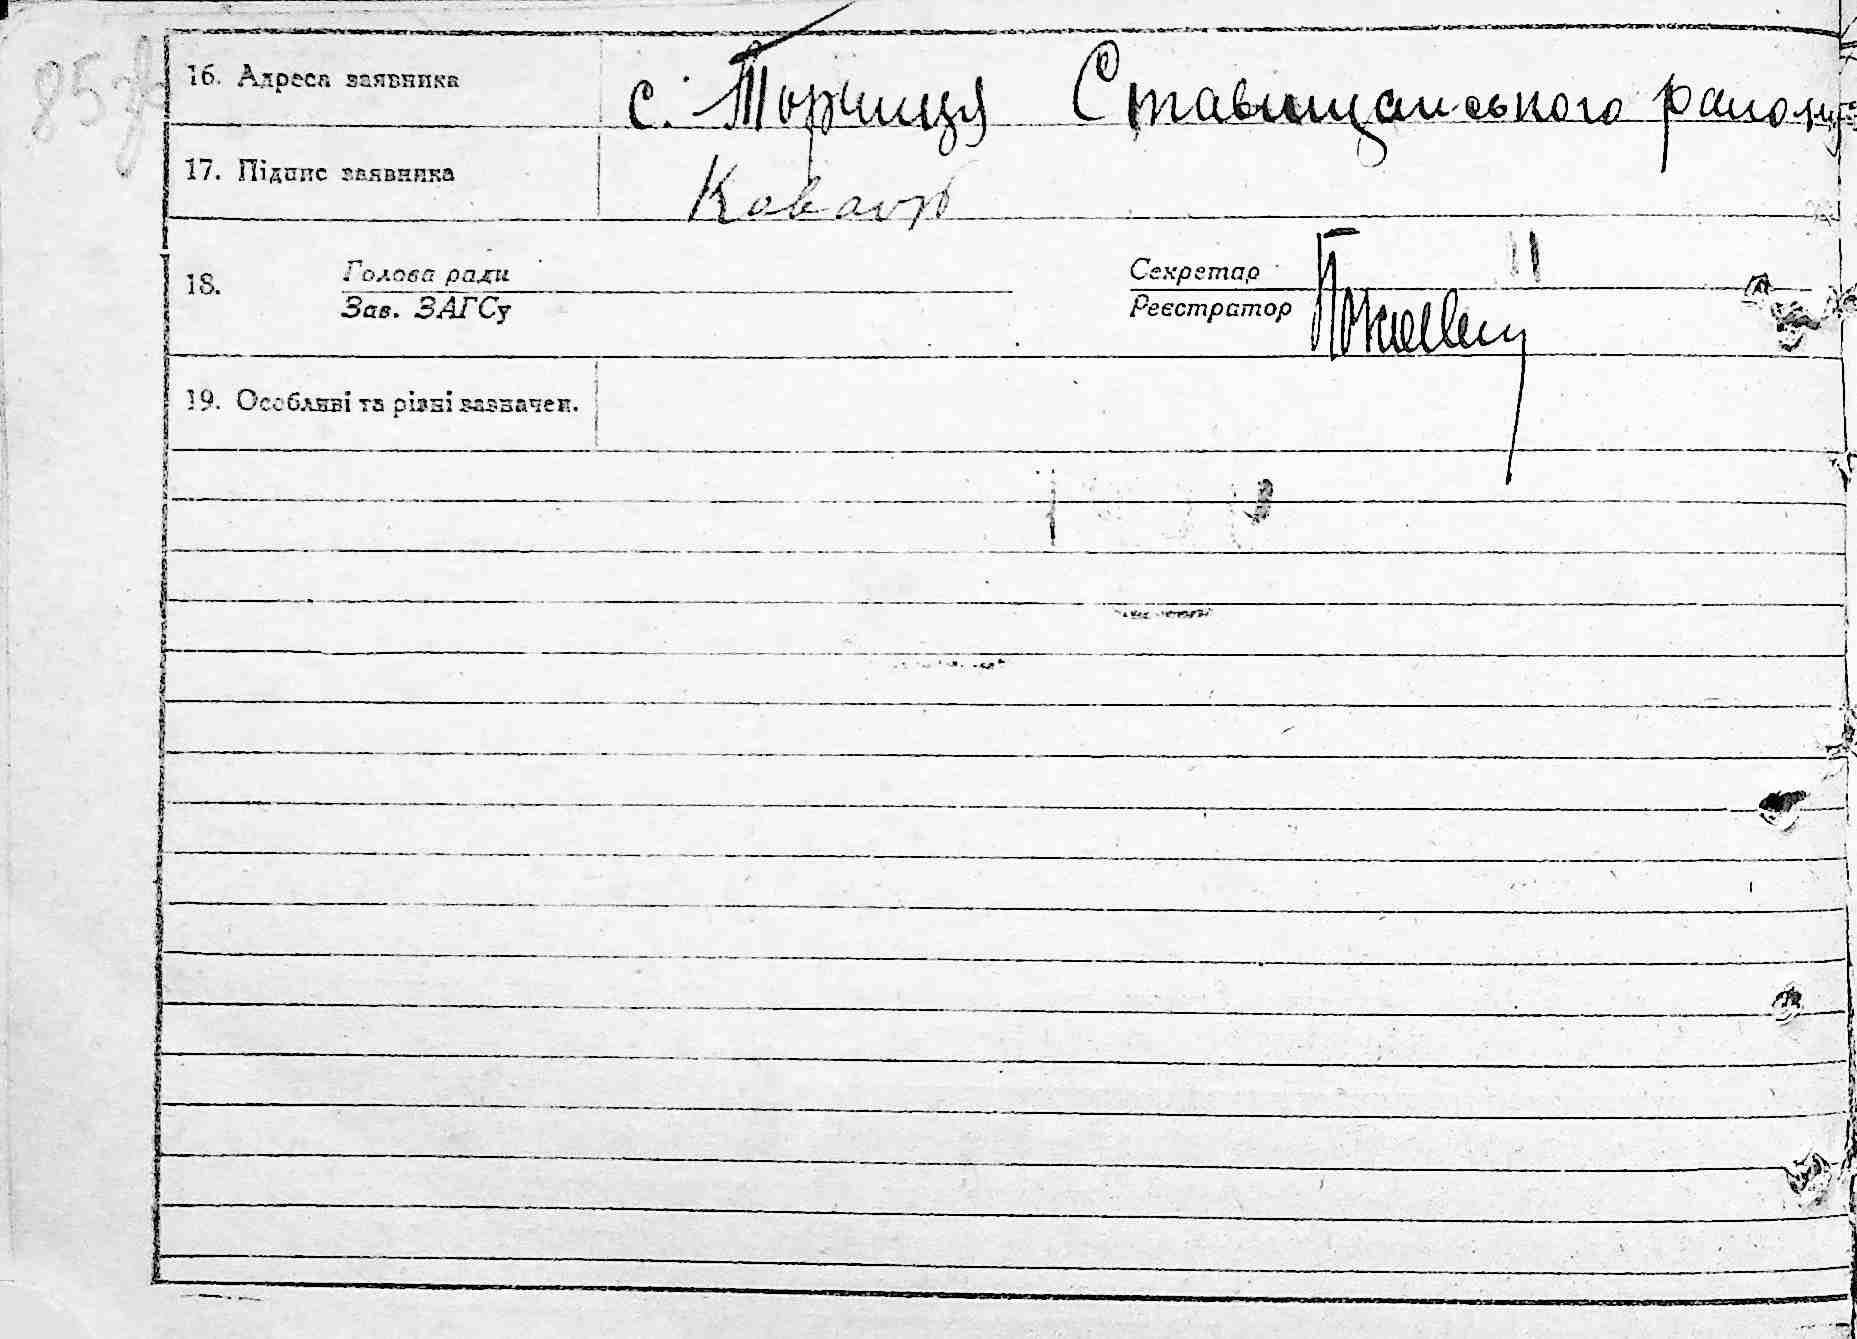 85
16. Адреса заявника с. Торчиця Ставищанського району
17. Підпис заявника Коваль
18. Голова ради Секретар
Зав. ЗАГСу Реєстратор
19. Особливі та різні зазначен.